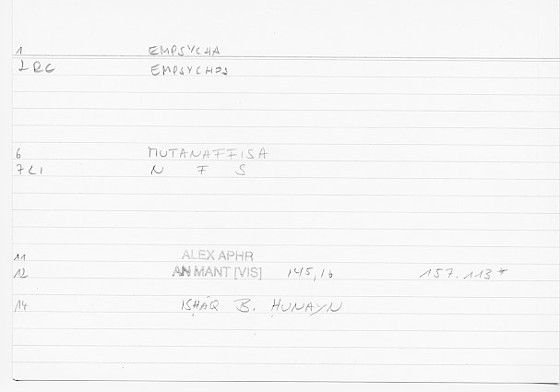 1 EMPSYCHA
1RG EMPSYCHOS
6 MUTANAFFISA
7LI N F S
11 ALEX APHR
12 AN MANT [VIS] 145,16 157.113*
14 ISḤĀQ B. ḤUNAYN